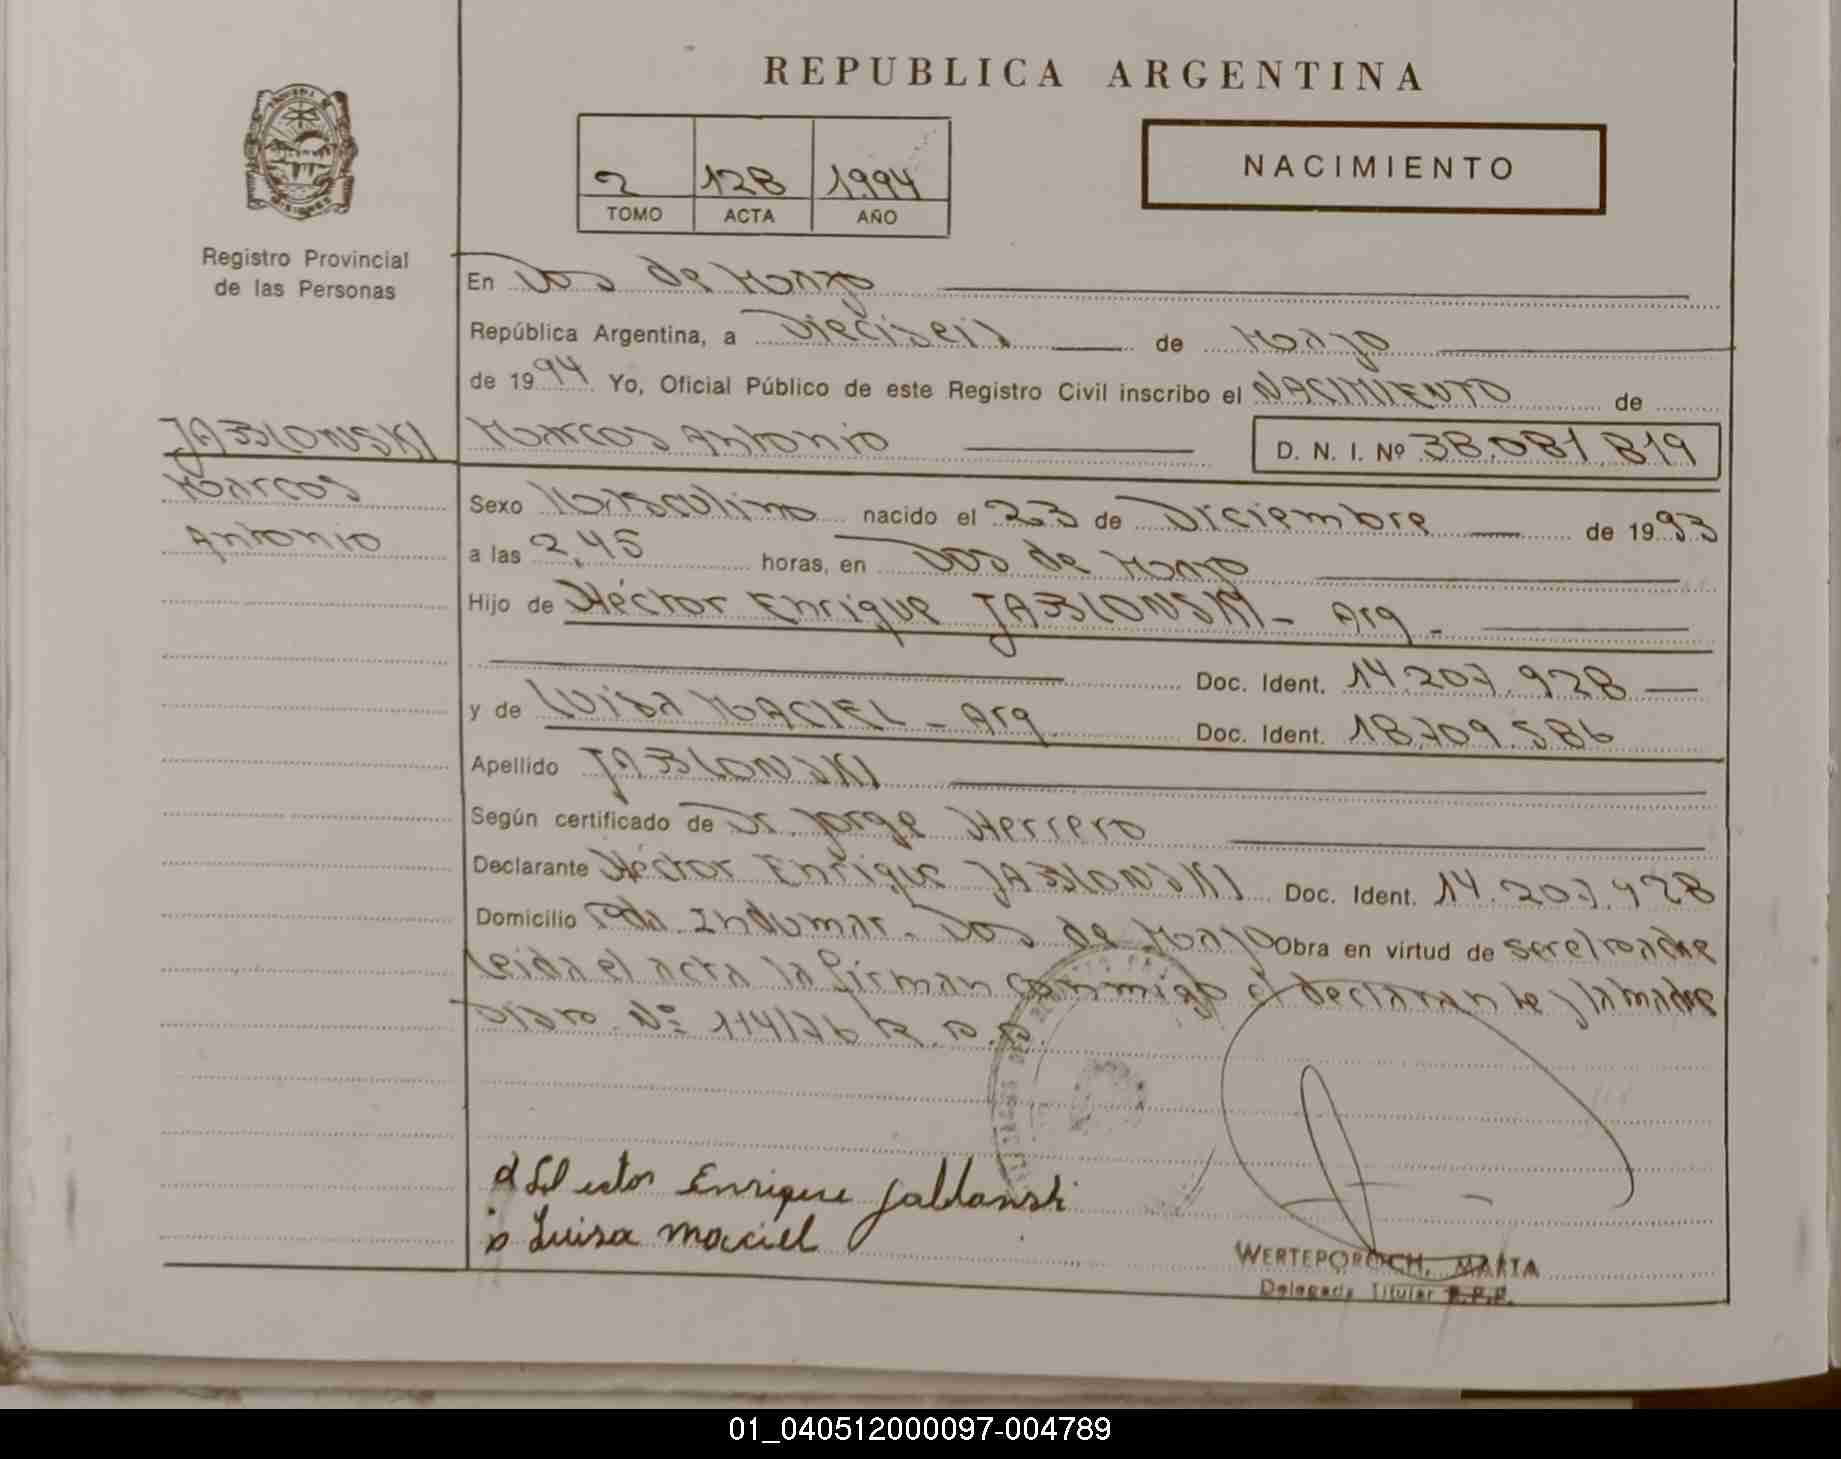 REPUBLICA ARGENTINA
NACIMIENTO
2 128 1994
TOMO ACTA AÑO
Registro Provincial
de las Personas
En Dos de Mayo
República Argentina, a Dieciseis de Marzo
de 1994 Yo, Oficial Público de este Registro Civil inscribo el NACIMIENTO de
JABLONSKI Marcos Antonio D. N. I. Nº 38.081.819
Marcos
Antonio
Sexo Masculino nacido el 23 de Diciembre de 1993
a las 2,45 horas, en Dos de Mayo
Hijo de Héctor Enrique JABLONSKI - Arg -
Doc. Ident. 14.207.928
y de Luisa MACIEL - Arg Doc. Ident. 18.709.586
Apellido JABLONSKI
Según certificado de Dr. Jorge Herrero
Declarante Héctor Enrique JABLONSKI Doc. Ident. 14.207.928
Domicilio Indumar. Dos de Mayo Obra en virtud de ser el padre
Leida el acta la firman conmigo el declarante y la madre
Nº 114/76 R.P.P.
Hector Enrique Jablonski
Luisa maciel
WERTEPOROCH, MARTA
Delegada Titular R.P.P.
01_040512000097-004789